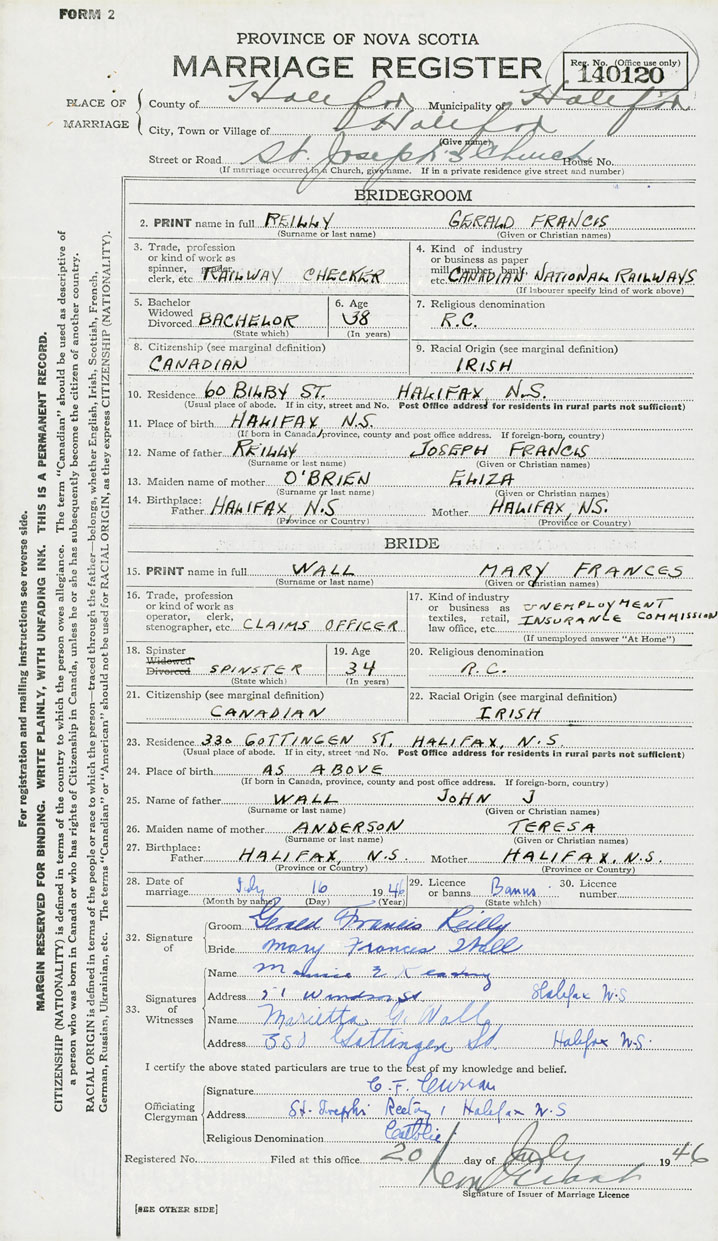 FORM 2
PROVINCE OF NOVA SCOTIA
MARRIAGE REGISTER
Reg. No. (Office use only)
140120
PLACE OF MARRIAGE
County of Halifax Municipality of Halifax
City, Town or Village of Halifax
(Give name)
Street or Road St. Joseph's Church House No.
(If marriage occurred in a Church, give name. If in a private residence give street and number)
BRIDEGROOM
2. PRINT name in full REILLY GERALD FRANCIS
(Surname or last name) (Given or Christian names)
3. Trade, profession or kind of work as spinner, grader, clerk, etc. RAILWAY CHECKER
4. Kind of industry or business as paper mill, lumber, bank, etc. CANADIAN NATIONAL RAILWAYS
(If labourer specify kind of work above)
5. Bachelor Widowed Divorced BACHELOR
(State which)
6. Age 38
(In years)
7. Religious denomination
R.C.
8. Citizenship (see marginal definition)
CANADIAN
9. Racial Origin (see marginal definition)
IRISH
10. Residence 60 BILBY ST. HALIFAX, N.S.
(Usual place of abode. If in city, street and No. Post Office address for residents in rural parts not sufficient)
11. Place of birth HALIFAX, N.S.
(If born in Canada, province, county and post office address. If foreign-born, country)
12. Name of father REILLY JOSEPH FRANCIS
(Surname or last name) (Given or Christian names)
13. Maiden name of mother O'BRIEN ELIZA
(Surname or last name) (Given or Christian names)
14. Birthplace:
Father HALIFAX, N.S Mother HALIFAX, NS.
(Province or Country) (Province or Country)
BRIDE
15. PRINT name in full WALL MARY FRANCES
(Surname or last name) (Given or Christian names)
16. Trade, profession or kind of work as operator, clerk, stenographer, etc. CLAIMS OFFICER
17. Kind of industry or business as textiles, retail, law office, etc. UNEMPLOYMENT INSURANCE COMMISSION
(If unemployed answer "At Home")
18. Spinster Widowed Divorced SPINSTER
(State which)
19. Age 34
(In years)
20. Religious denomination
R.C.
21. Citizenship (see marginal definition)
CANADIAN
22. Racial Origin (see marginal definition)
IRISH
23. Residence 330 GOTTINGEN ST, HALIFAX, N.S.
(Usual place of abode. If in city, street and No. Post Office address for residents in rural parts not sufficient)
24. Place of birth AS ABOVE
(If born in Canada, province, county and post office address. If foreign-born, country)
25. Name of father WALL JOHN J
(Surname or last name) (Given or Christian names)
26. Maiden name of mother ANDERSON TERESA
(Surname or last name) (Given or Christian names)
27. Birthplace:
Father HALIFAX, N.S. Mother HALIFAX, N.S.
(Province or Country) (Province or Country)
28. Date of marriage July 16 1946
(Month by name) (Day) (Year)
29. Licence or banns Banns
(State which)
30. Licence number
32. Signature of
Groom Gerald Francis Reilly
Bride Mary Frances Wall
33. Signatures of Witnesses
Name
Address Windsor St. Halifax N.S
Name Marietta G. Wall
Address Gottingen St. Halifax N.S.
I certify the above stated particulars are true to the best of my knowledge and belief.
Officiating Clergyman
Signature C. F. Curran
Address St. Joseph's Rectory, Halifax N.S
Religious Denomination Catholic
Registered No. Filed at this office 20 day of July 1946
Signature of Issuer of Marriage Licence
[SEE OTHER SIDE]
For registration and mailing instructions see reverse side.
MARGIN RESERVED FOR BINDING. WRITE PLAINLY, WITH UNFADING INK. THIS IS A PERMANENT RECORD.
CITIZENSHIP (NATIONALITY) is defined in terms of the country to which the person owes allegiance. The term "Canadian" should be used as descriptive of
a person who was born in Canada or who has rights of Citizenship in Canada, unless he or she has subsequently become the citizen of another country.
RACIAL ORIGIN is defined in terms of the people or race to which the person—traced through the father—belongs, whether English, Irish, Scottish, French,
German, Russian, Ukrainian, etc. The terms "Canadian" or "American" should not be used for RACIAL ORIGIN, as they express CITIZENSHIP (NATIONALITY).